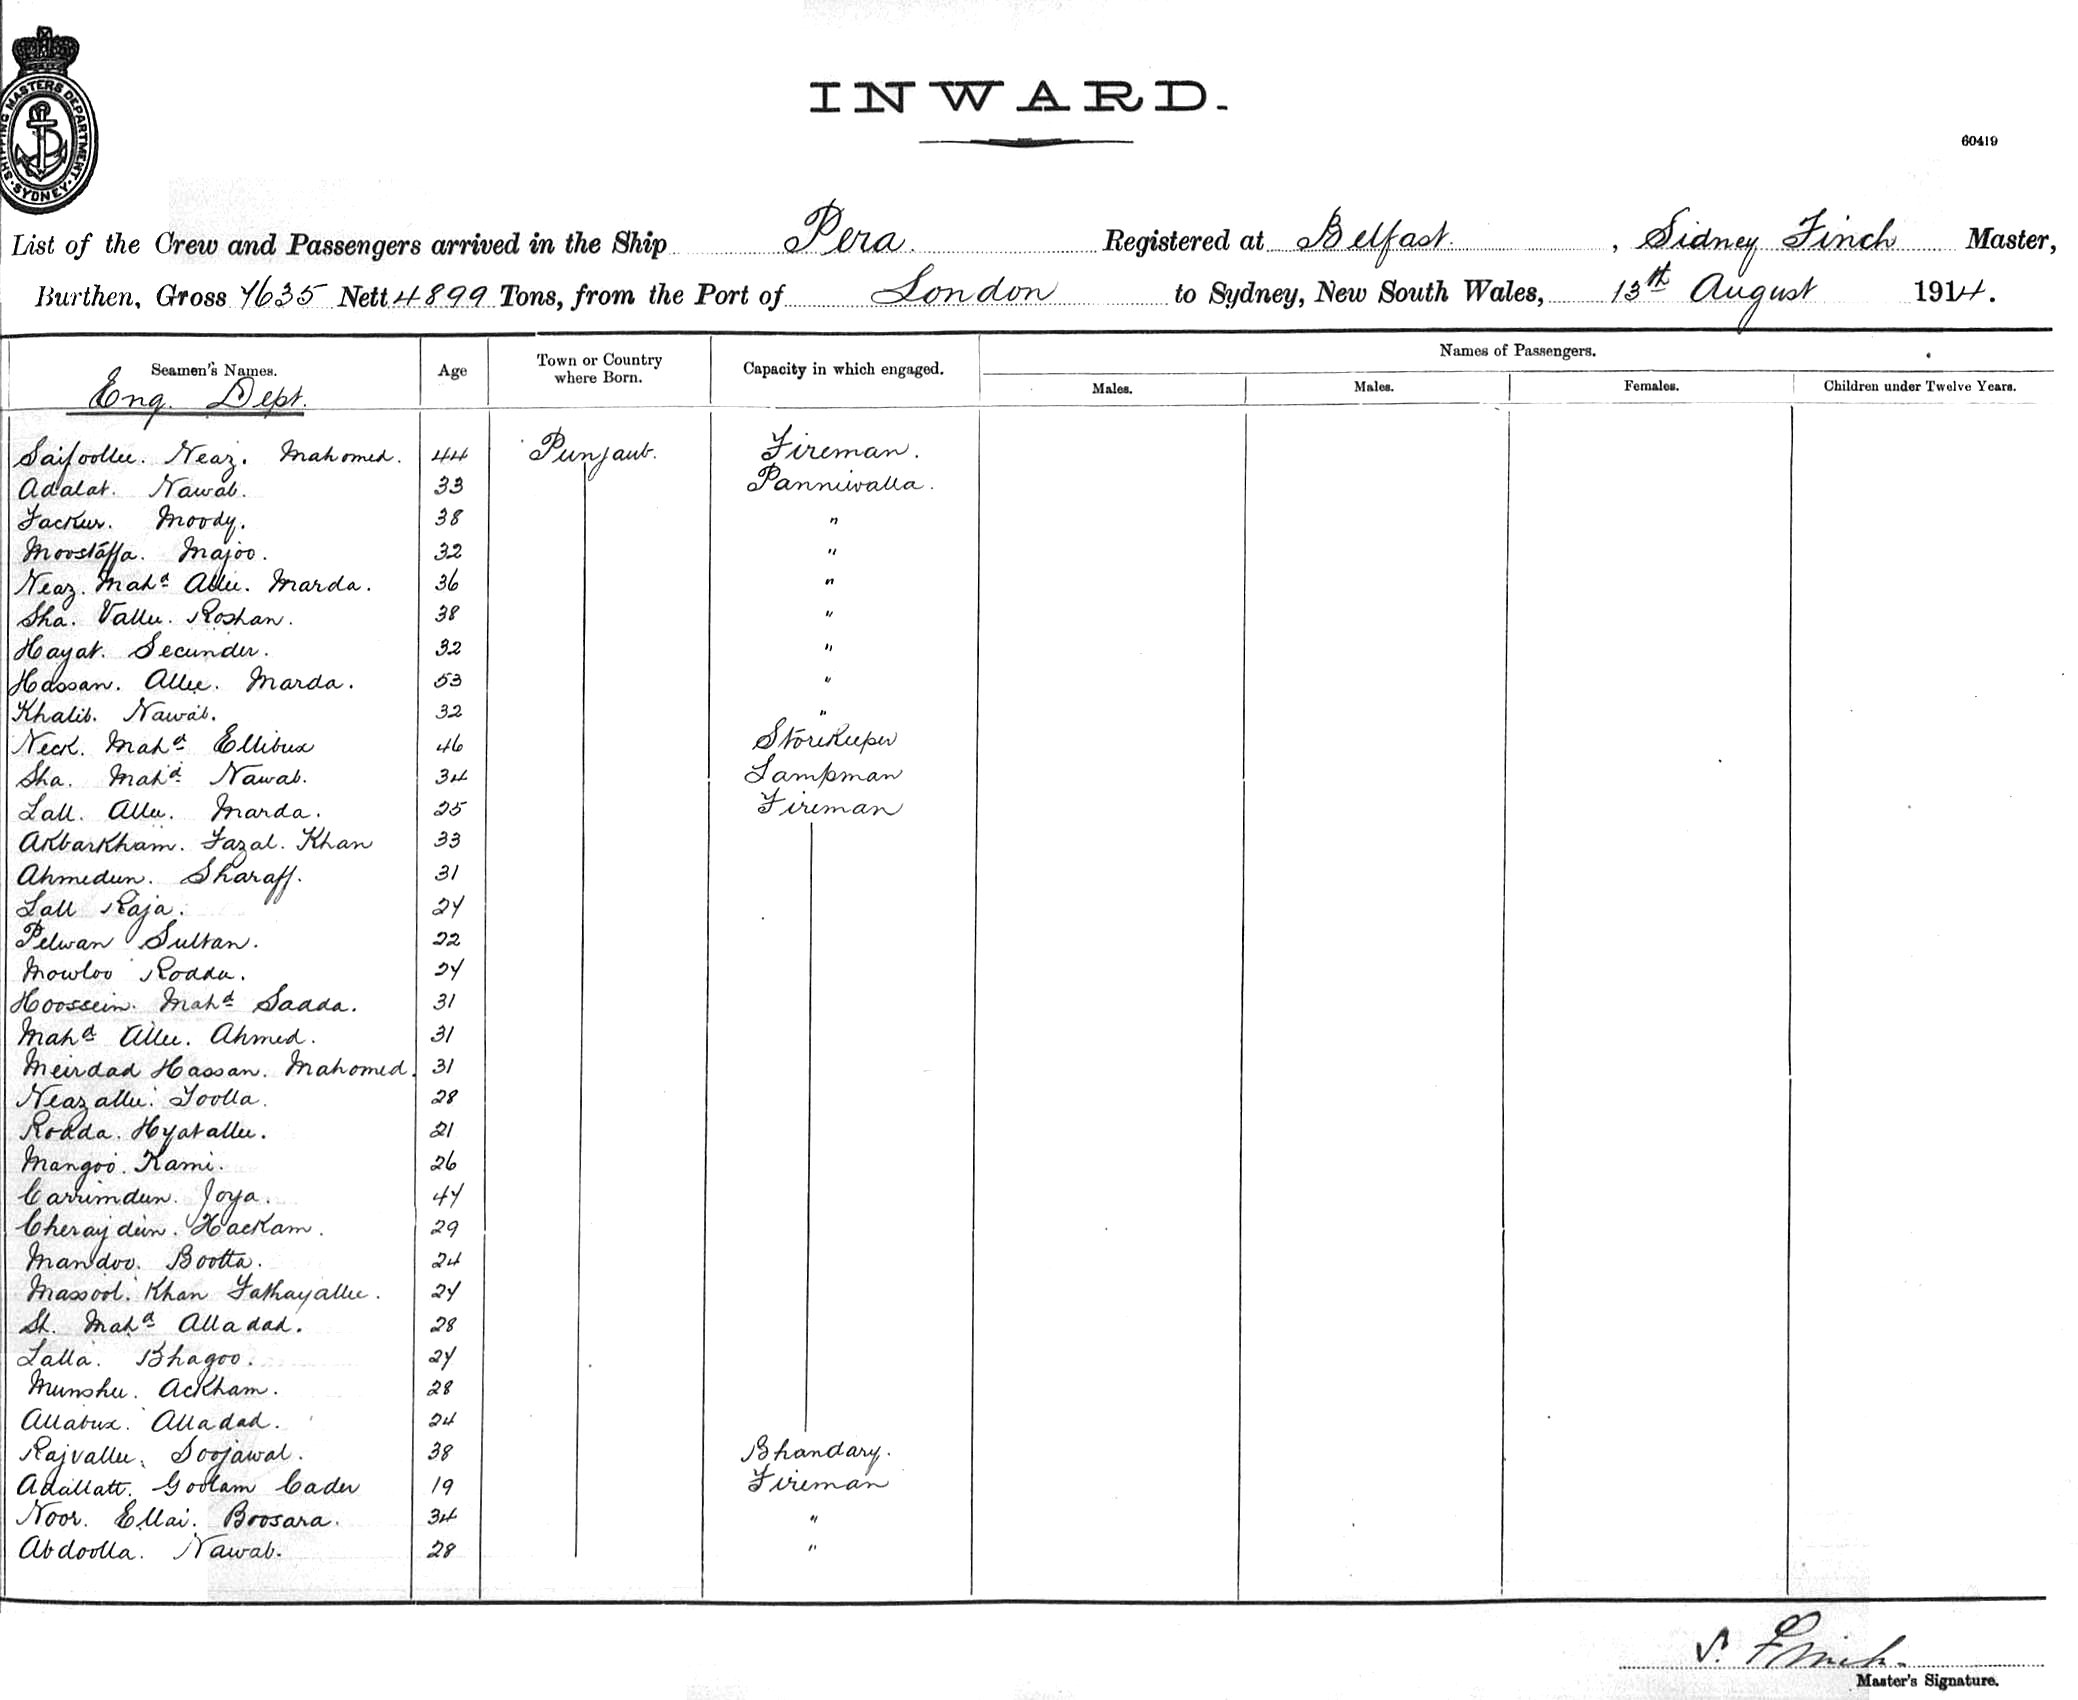 SHIPPING MASTERS DEPARTMENT · SYDNEY ·
INWARD.
60419
List of the Crew and Passengers arrived in the Ship Pera. Registered at Belfast. , Sidney Finch Master,
Burthen, Gross 7635 Nett 4899 Tons, from the Port of London to Sydney, New South Wales, 13th August 1914.
Seamen's Names. Age Town or Country where Born. Capacity in which engaged. Names of Passengers.
Males. Males. Females. Children under Twelve Years.
Eng. Dept.
Saifoollee. Neaz. Mahomed. 44 Punjaub. Fireman.
Adalat. Nawab. 33 Panniwalla.
Fackur. Moody. 38 "
Moostaffa. Majoo. 32 "
Neaz. Mahd Allee. Marda. 36 "
Sha. Vallee. Roshan. 38 "
Hayat. Secunder. 32 "
Hassan. Allee. Marda. 53 "
Khalib. Nawab. 32 "
Neck. Mahd Ellibux 46 Storekeeper
Sha. Mahd Nawab. 34 Lampman
Lall. Allee. Marda. 25 Fireman
Akbarkham. Fazal. Khan 33
Ahmedun. Sharaff. 31
Lall Raja. 27
Pelwan Sultan. 22
Mowloo Rodda. 27
Hoossein. Mahd Sadda. 31
Mahd Allee. Ahmed. 31
Meirdad Hassan. Mahomed. 31
Neazallee. Toolla. 28
Rodda. Hyatallee. 21
Mangoo. Kami. 26
Carrimdun. Joya. 47
Cherajdin. Hackam. 29
Mandoo. Bootta. 24
Massool. Khan Fathayallee. 27
St. Mahd Alladad. 28
Lalla. Bhagoo. 27
Munshee. Ackham. 28
Allabux. Alladad. 24
Rajvallee. Soojawal. 38 Bhandary.
Adallatt. Goolam Cader 19 Fireman
Noor. Ellai. Boosara. 34 "
Abdoolla. Nawab. 28 "
S. Finch.
Master's Signature.